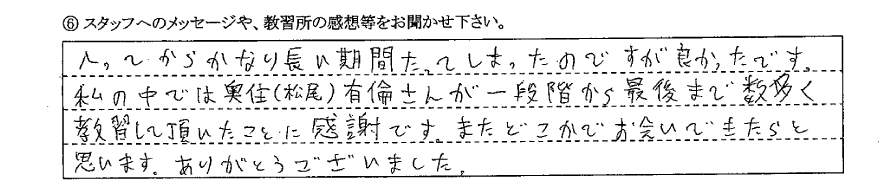 ⑥ スタッフへのメッセージや、教習所の感想等をお聞かせ下さい。
入ってからかなり長い期間たってしまったのですが良かったです。
私の中では奥住(松尾)有倫さんが一段階から最後まで数多く
教習して頂いたことに感謝です。またどこかでお会いできたらと
思います。ありがとうございました。